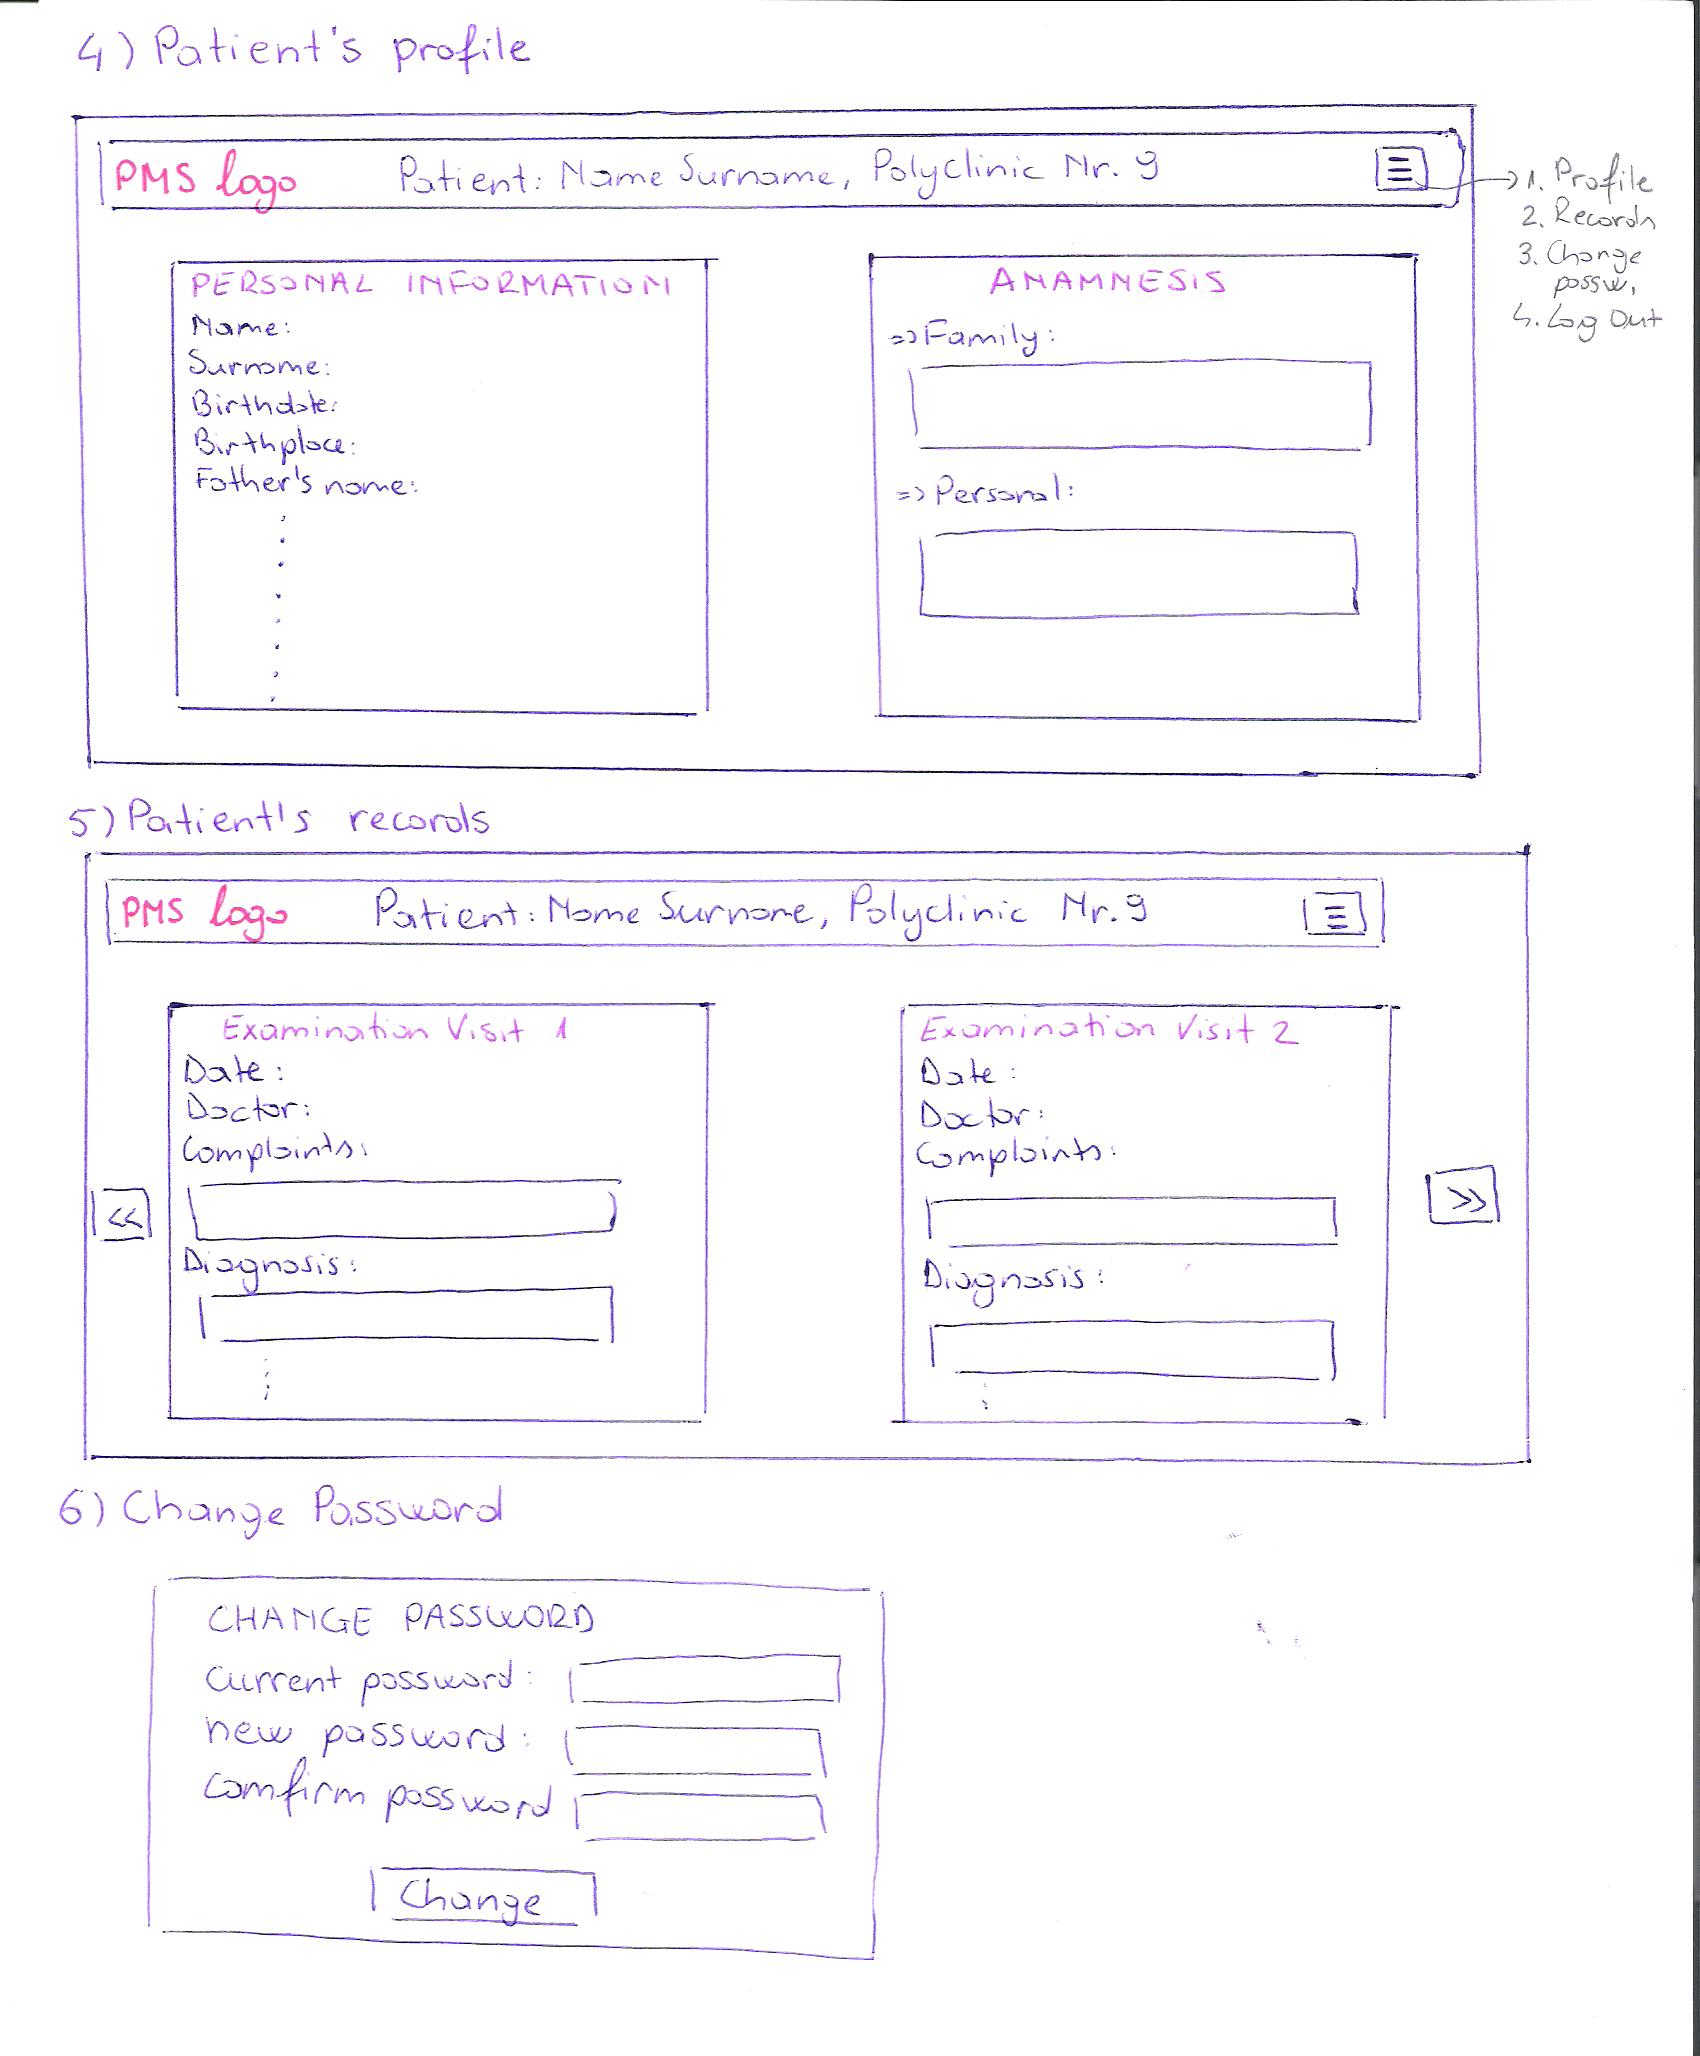 4) Patient's profile
PMS logo Patient: Name Surname, Polyclinic Nr. 9
→ 1. Profile
2. Records
3. Change
passw.
4. Log Out
PERSONAL INFORMATION
Name:
Surname:
Birthdate:
Birthplace:
Father's name:
ANAMNESIS
=> Family:
=> Personal:
5) Patient's records
PMS logo Patient: Name Surname, Polyclinic Nr. 9
<<
Examination Visit 1
Date:
Doctor:
Complaints:
Diagnosis:
Examination Visit 2
Date:
Doctor:
Complaints:
Diagnosis:
>>
6) Change Password
CHANGE PASSWORD
Current password:
new password:
comfirm password
Change